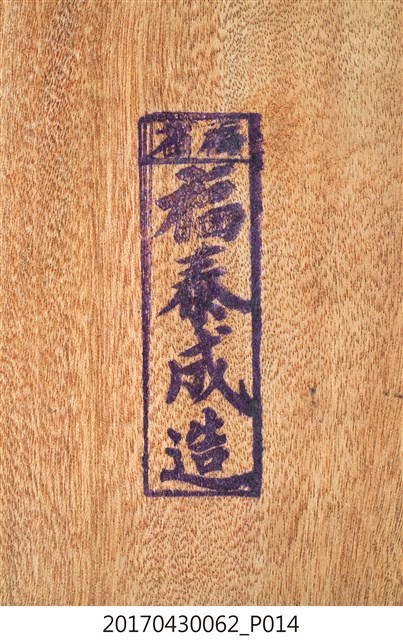 福省
福泰成造
20170430062_P014